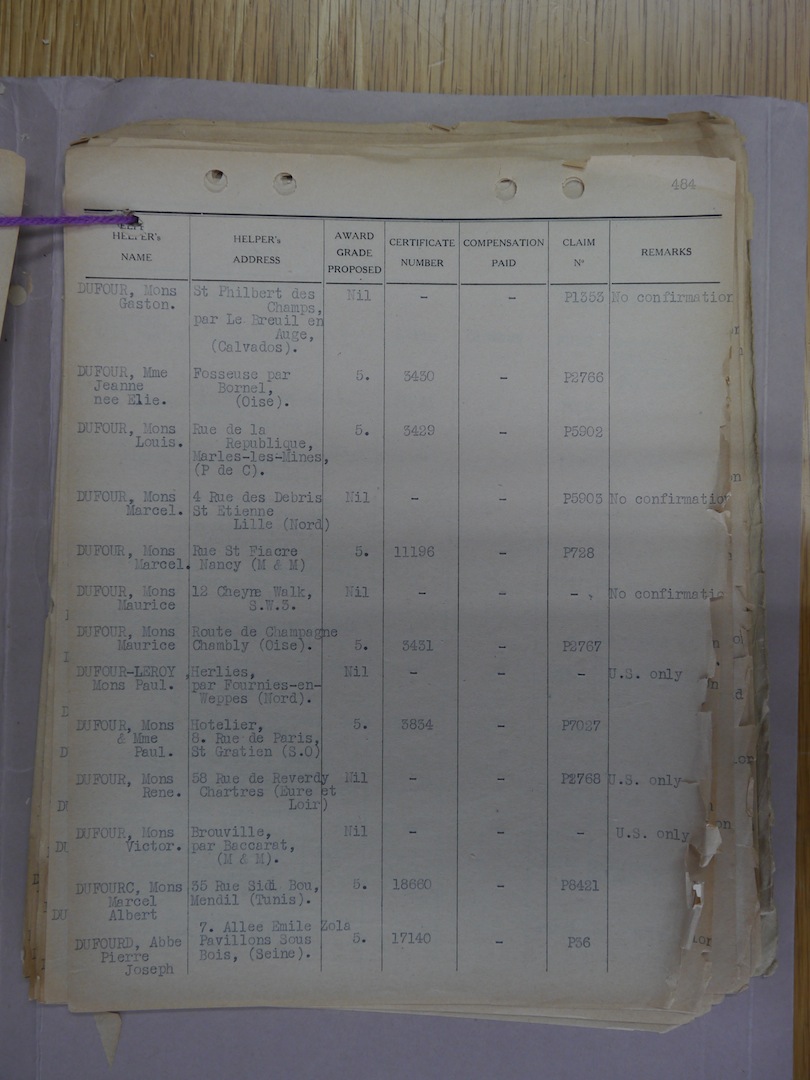 484
HELPER's NAME
HELPER's ADDRESS
AWARD GRADE PROPOSED
CERTIFICATE NUMBER
COMPENSATION PAID
CLAIM Nº
REMARKS
DUFOUR, Mons St Philbert des Nil - - P1353 No confirmation
Gaston. Champs,
par Le Breuil en
Auge,
(Calvados).
DUFOUR, Mme Fosseuse par 5. 3430 - P2766
Jeanne Bornel,
nee Elie. (Oise).
DUFOUR, Mons Rue de la 5. 3429 - P5902
Louis. Republique,
Marles-les-Mines,
(P de C).
DUFOUR, Mons 4 Rue des Debris Nil - - P5903 No confirmation
Marcel. St Etienne
Lille (Nord)
DUFOUR, Mons Rue St Fiacre 5. 11196 - P728
Marcel. Nancy (M & M)
DUFOUR, Mons 12 Cheyne Walk, Nil - - - , No confirmatio
Maurice S.W.3.
DUFOUR, Mons Route de Champagne
Maurice Chambly (Oise). 5. 3431 - P2767
DUFOUR-LEROY , Herlies, Nil - - - U.S. only
Mons Paul. par Fournies-en-
Weppes (Nord).
DUFOUR, Mons Hotelier, 5. 3834 - P7027
& Mme 8. Rue de Paris,
Paul. St Gratien (S.O)
DUFOUR, Mons 58 Rue de Reverdy Nil - - P2768 U.S. only-
Rene. Chartres (Eure et
Loir)
DUFOUR, Mons Brouville, Nil - - - U.S. only
Victor. par Baccarat,
(M & M).
DUFOURC, Mons 35 Rue Sidi Bou, 5. 18660 - P8421
Marcel Mendil (Tunis).
Albert
7. Allee Emile Zola
DUFOURD, Abbe Pavillons Sous 5. 17140 - P36
Pierre Bois, (Seine).
Joseph